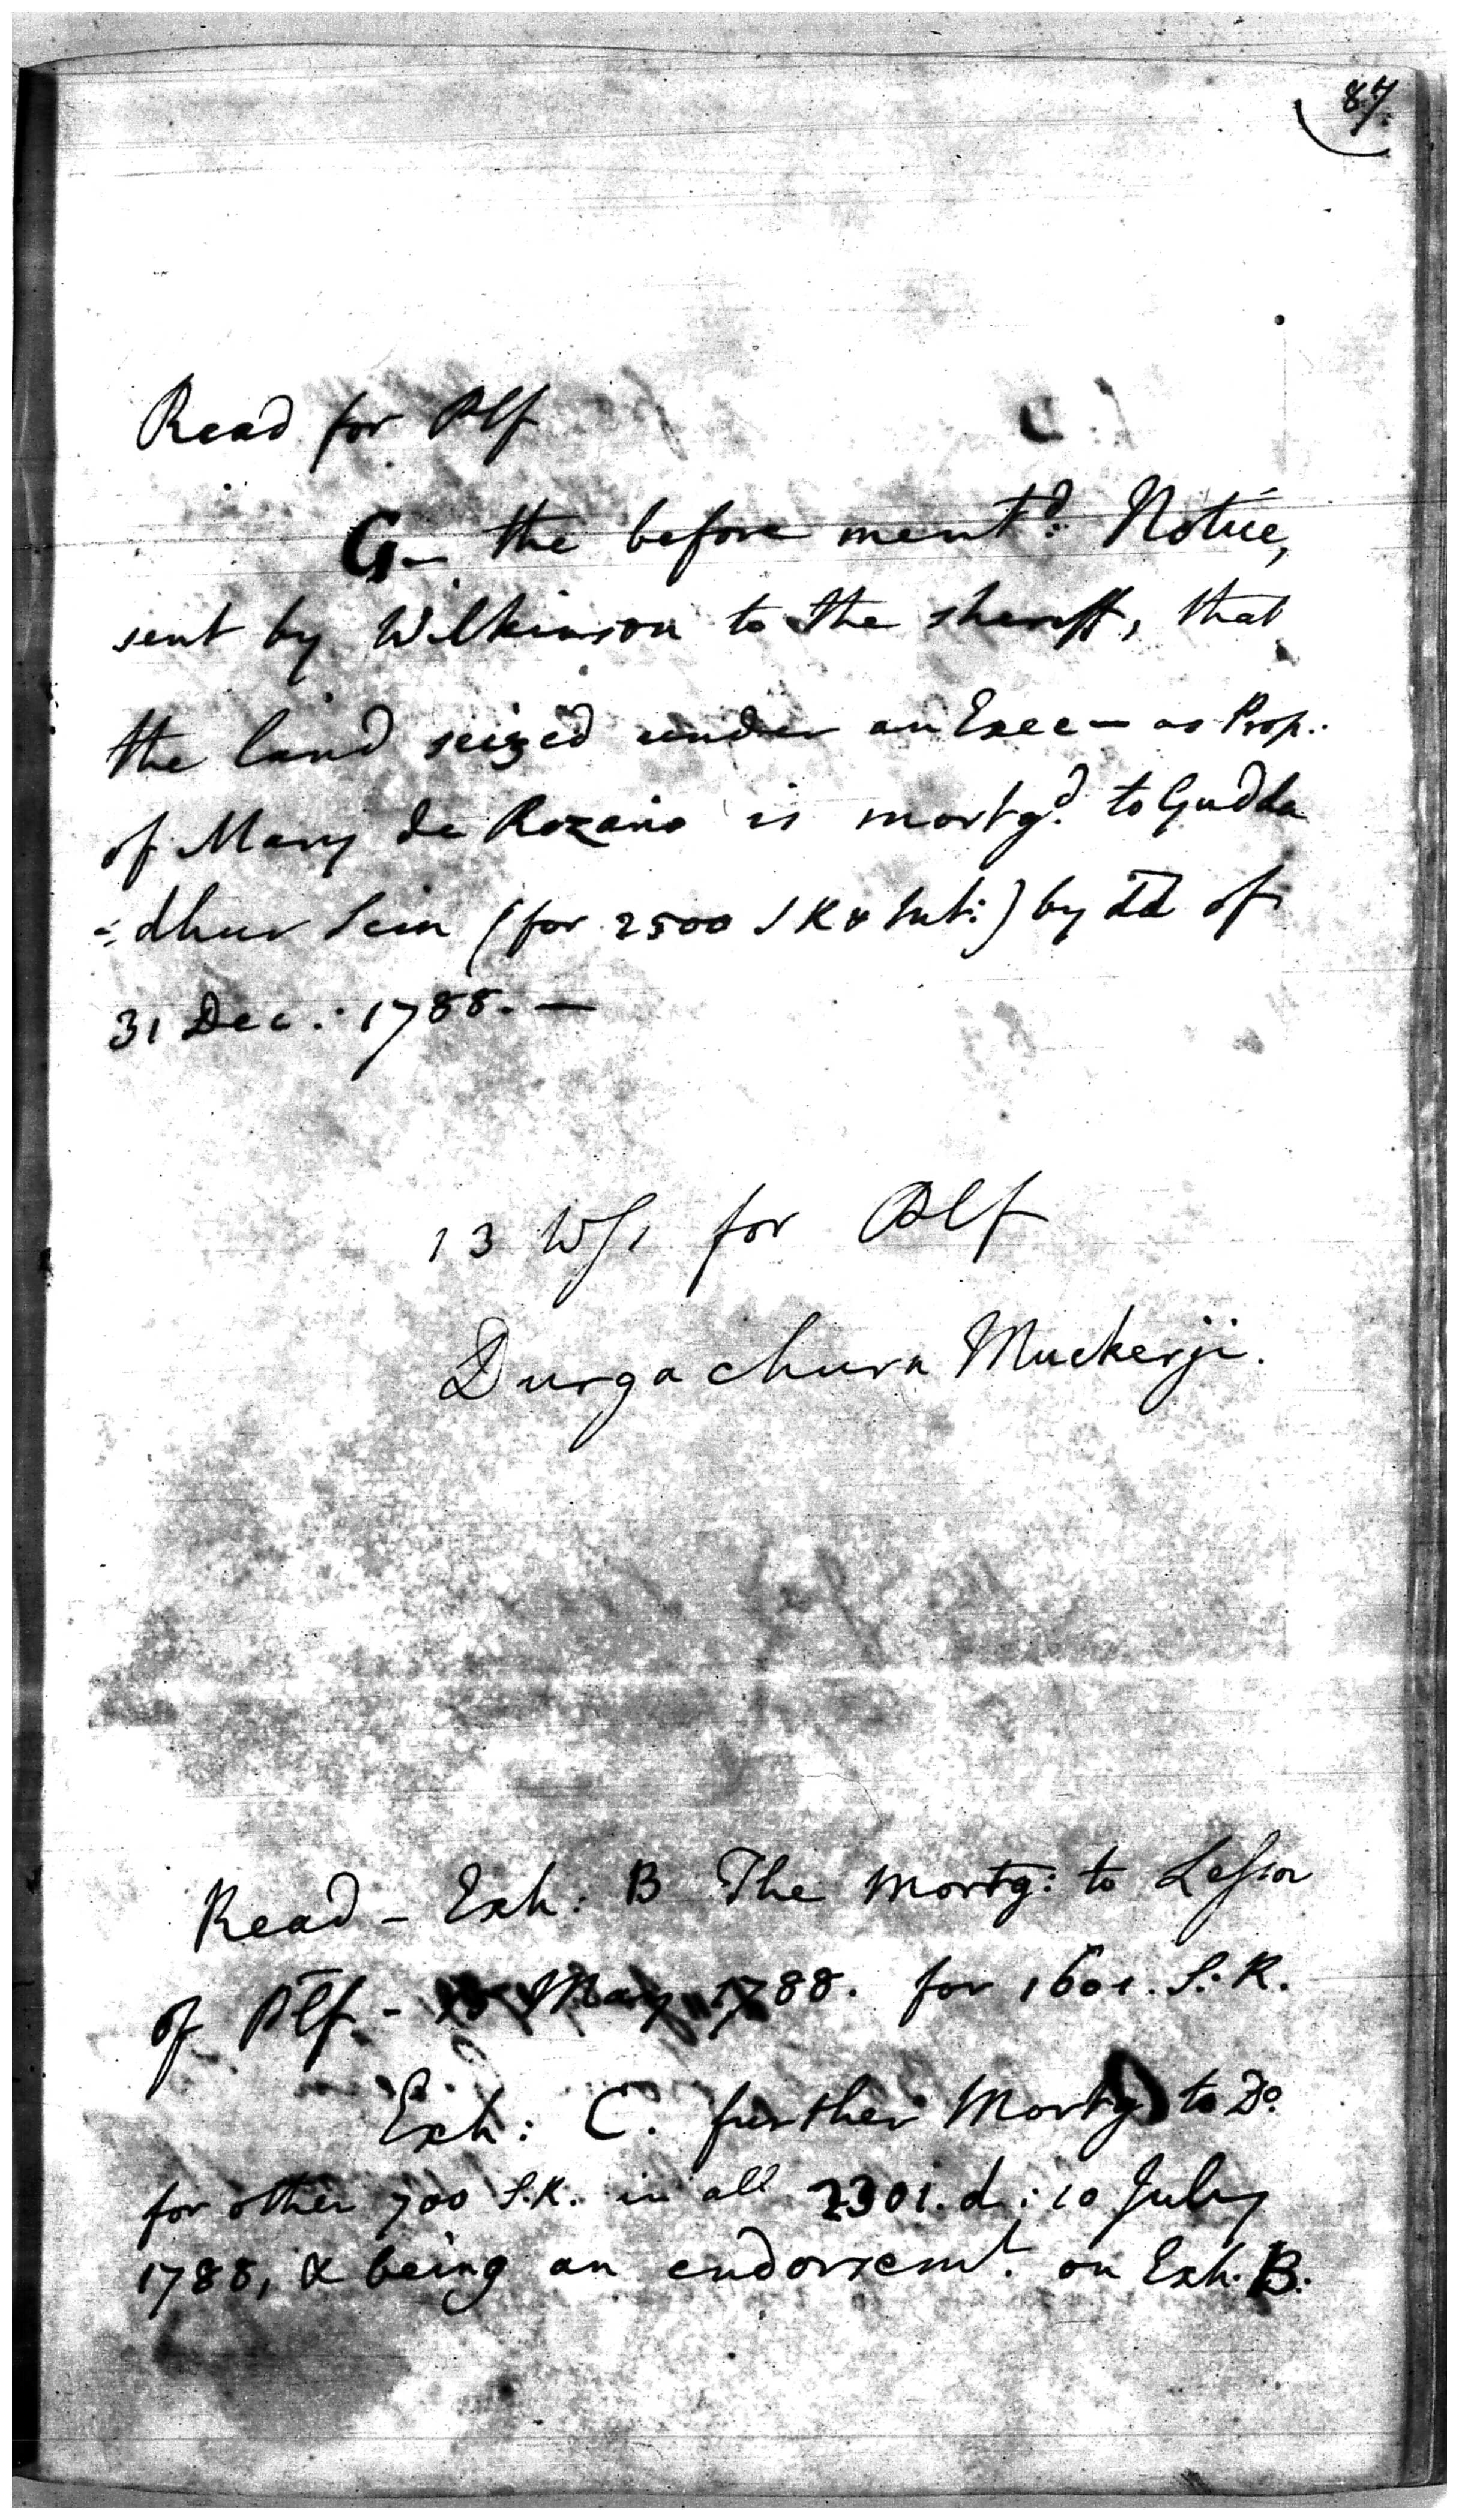 87.
Read for Plf
G- the before ment^d: Notice,
sent by Wilkinson to the sheriff, that
the land seized under an Exec— as Prop.
of Mary de Rozario is mortg^d. to Gudda
=dhur Sein (for 2500 S R & Int:) by dd of
31 Dec.: 1788. —
13 Wſs for Plf
Durgachurn Muckerji.
Read - Exh: B The Mortg: to Leſsor
of Plf. - 13 May 1788. for 1601. S. R.
Exh: C. further Mortg to D^o.
for other 700 S.R. in all 2301. d.: 10 July
1788, & being an endorsemt. on Exh. B.